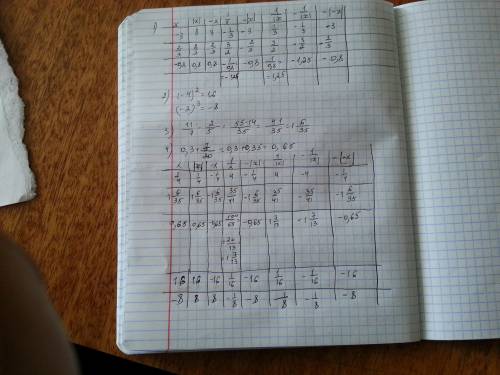 1) x |x| -x 1/x -|x| 1/|x| -1/|x| -|-x|
-3 3 3 -1/3 -3 1/3 -1/3 +3
-0,8 0,8 0,8 -0,8 -1,25 -0,8
=-1,25 =1,25
2) (-4)² = 16
(-2)³ = -8
3) 11/7 - 2/5 = 55-14/35 = 41/35 = 1 6/35
4) 0,3+7/20 = 0,3+0,35 = 0,65
x |x| -x 1/x -|x| 1/|x| -1/|x| -|-x|
1/4 1/4 -1/4 4 -1/4 4 -4 -1/4
1 6/35 1 6/35 -1 6/35 35/41 -1 6/35 35/41 -35/41 -1 6/35
0,65 0,65 -0,65 100/65 -0,65 1 7/13 -1 7/13 -0,65
=20/13
=1 7/13
16 16 -16 1/16 -16 1/16 -1/16 -16
-8 8 8 -1/8 -8 1/8 -1/8 -8